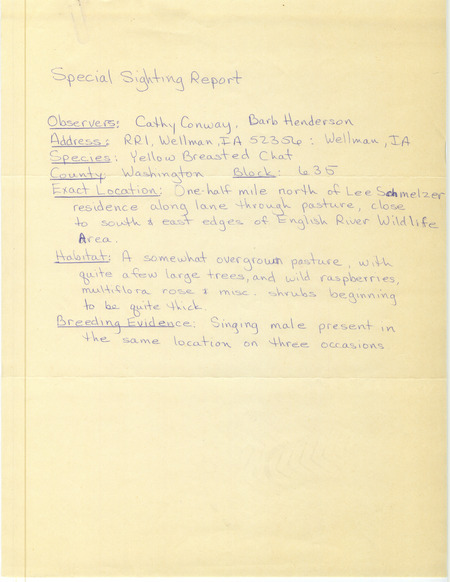 Special Sighting Report
Observers: Cathy Conway, Barb Henderson
Address: RR1, Wellman, IA 52356 : Wellman, IA
Species: Yellow Breasted Chat
County: Washington Block: 635
Exact Location: One-half mile north of Lee Schmelzer
residence along lane through pasture, close
to south & east edges of English River Wildlife
Area.
Habitat: A somewhat overgrown pasture, with
quite a few large trees, and wild raspberries,
multiflora rose & misc. shrubs beginning
to be quite thick.
Breeding Evidence: Singing male present in
the same location on three occasions